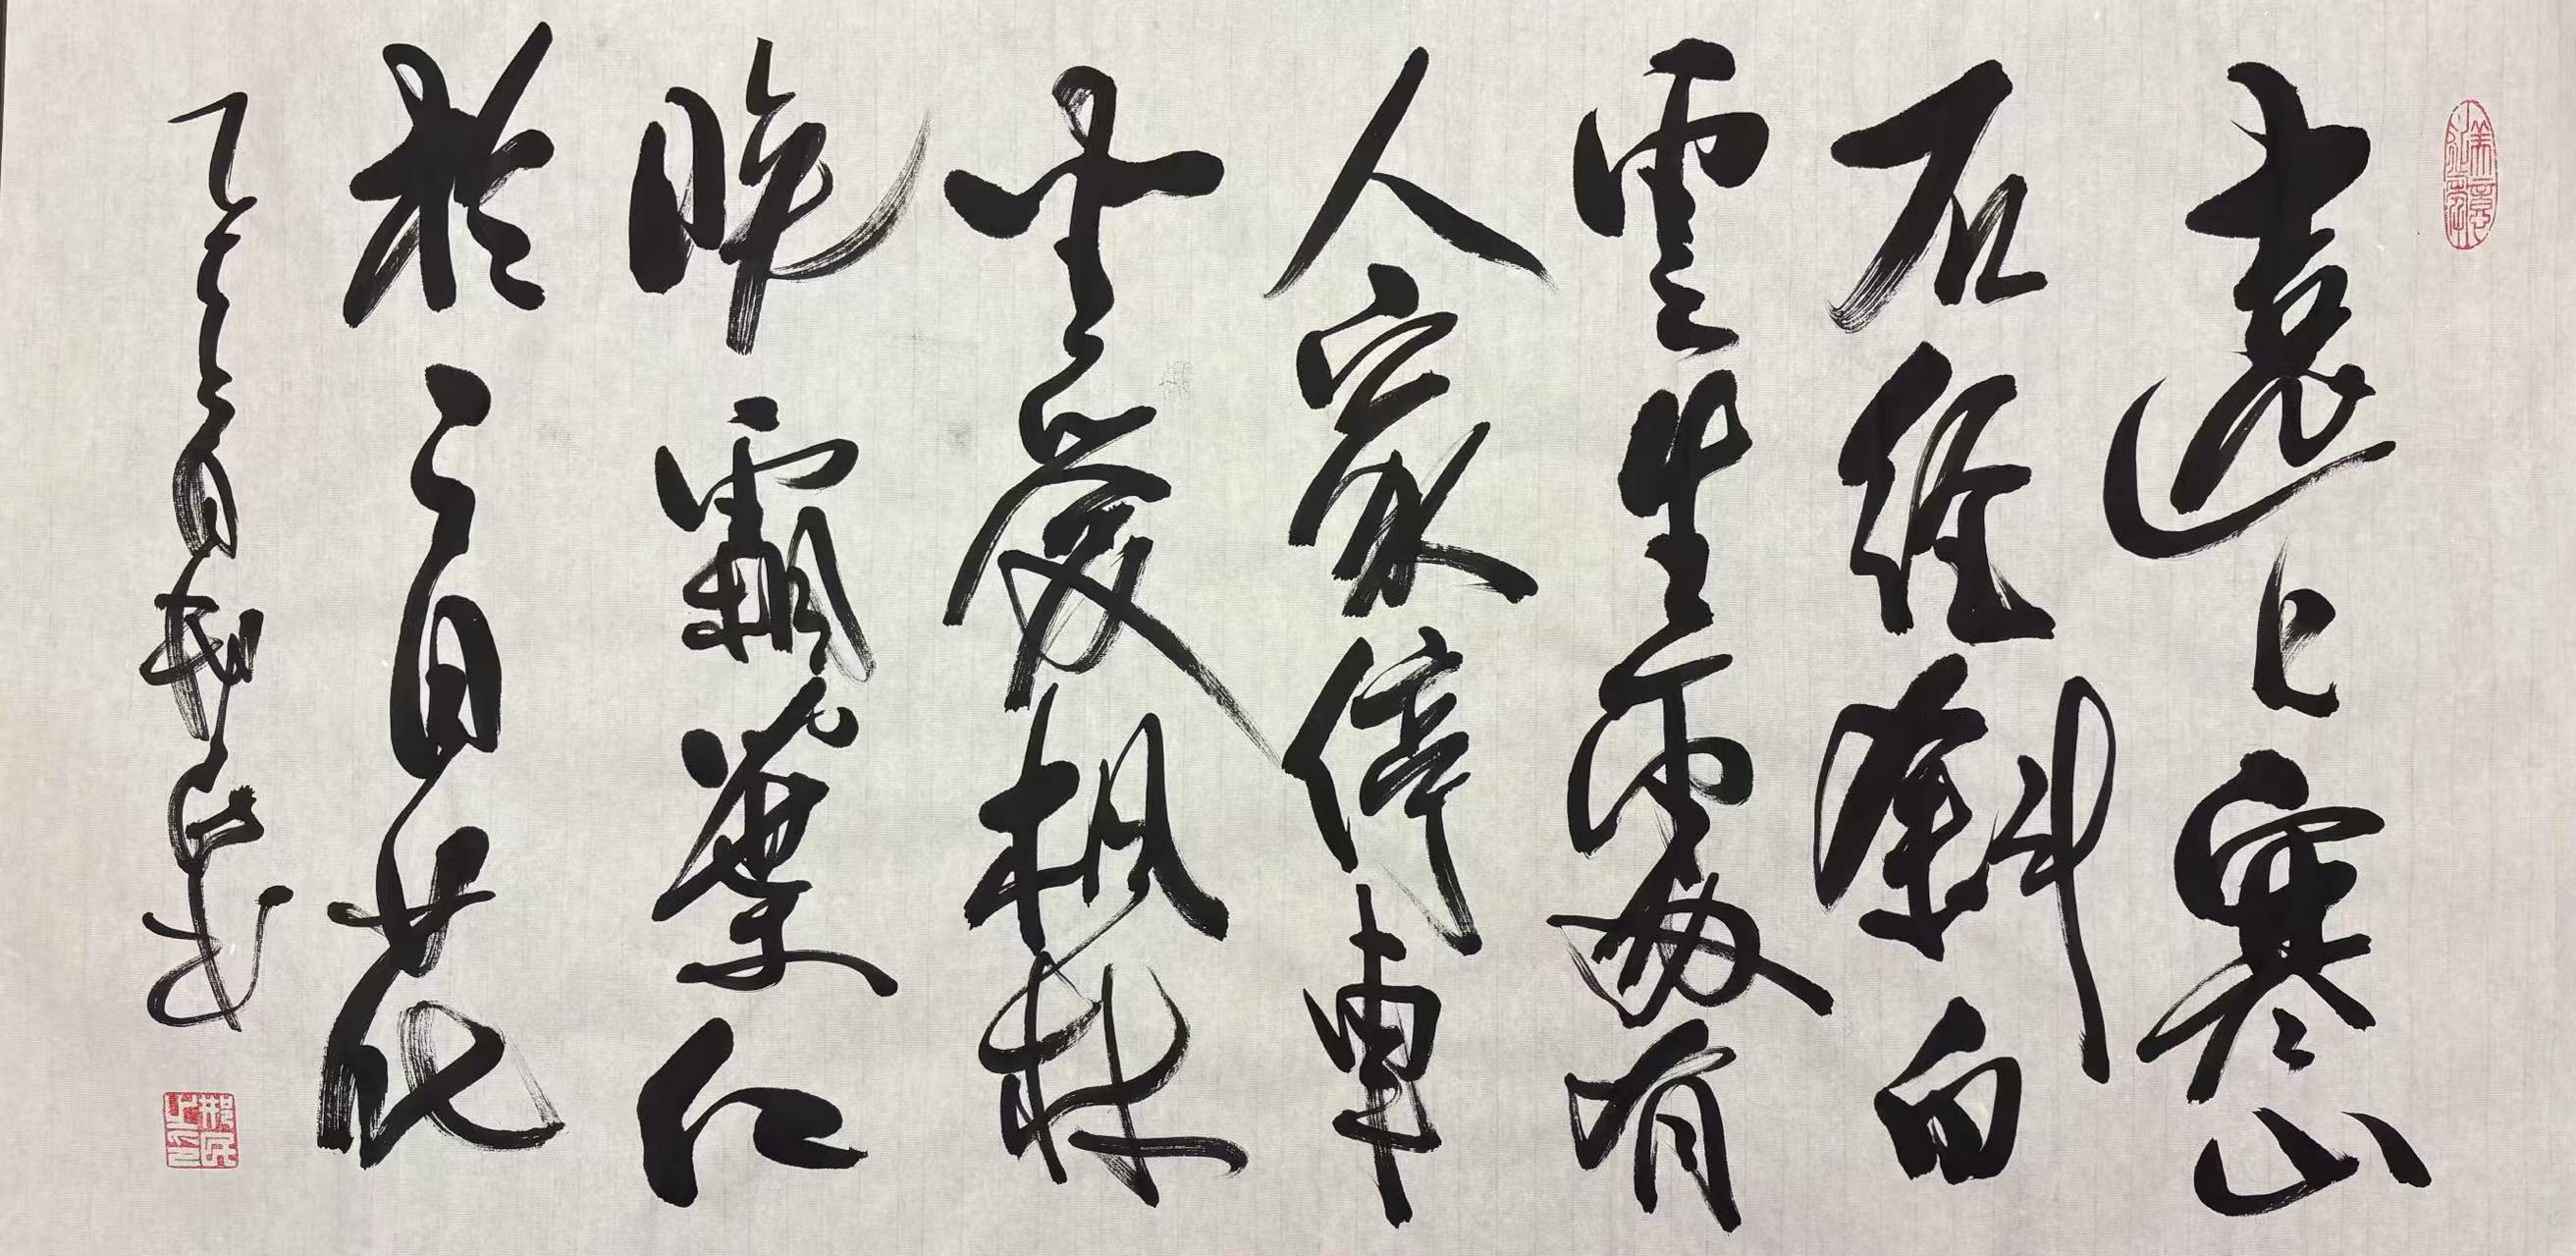 遠上寒山
石經斜白
雲生處有
人家停車
坐愛枫林
晚霜葉红
於二月花
乙巳